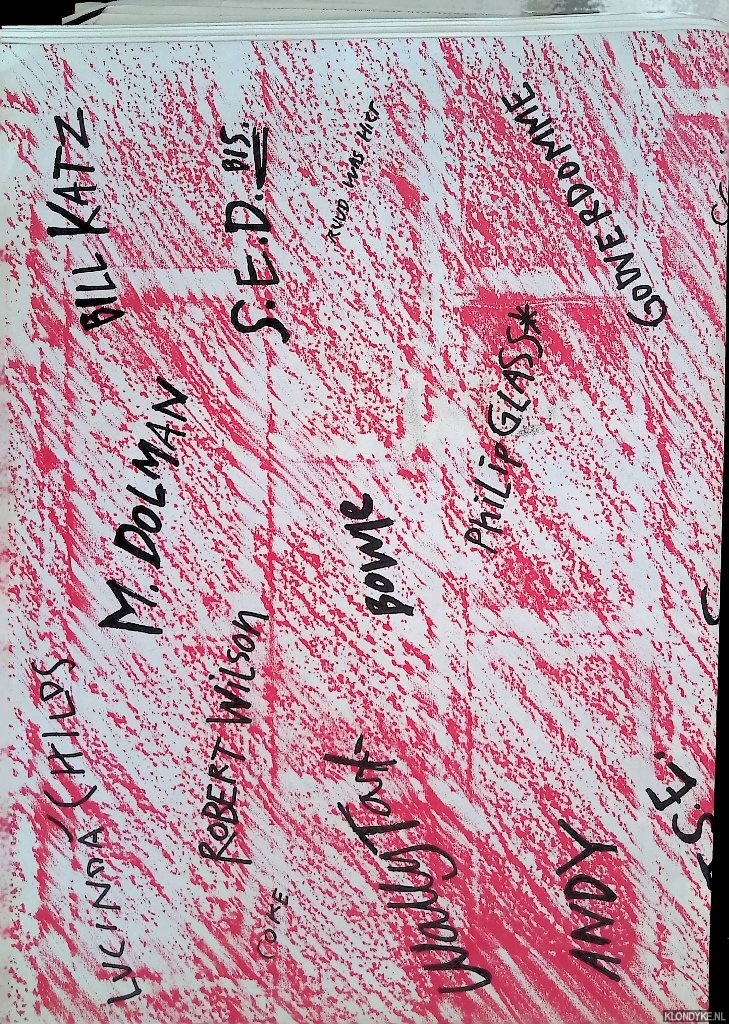 BILL KATZ
S.E.D. BIS.
RUUD WAS HIER
GODVERDOMME
M. DOLMAN
BOWIE
PHILIP GLASS*
LUCINDA CHILDS
ROBERT WILSON
COKE
Wally Tax
ANDY
S.E.
KLONDYKE.NL